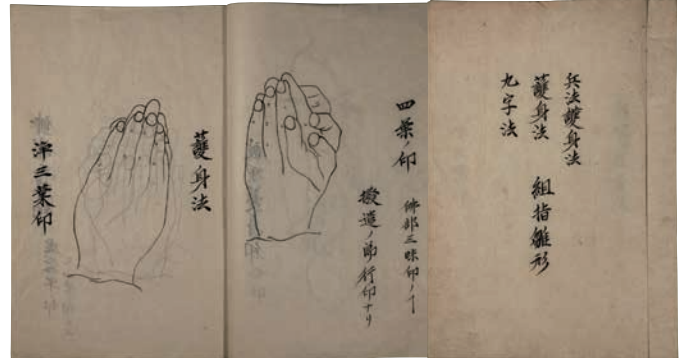 兵法護身法
護身法
九字法
組指雛形
四葉ノ印
佛部三昧印ノ丁
撥遣ノ節行印ナリ
護身法
淨三業印